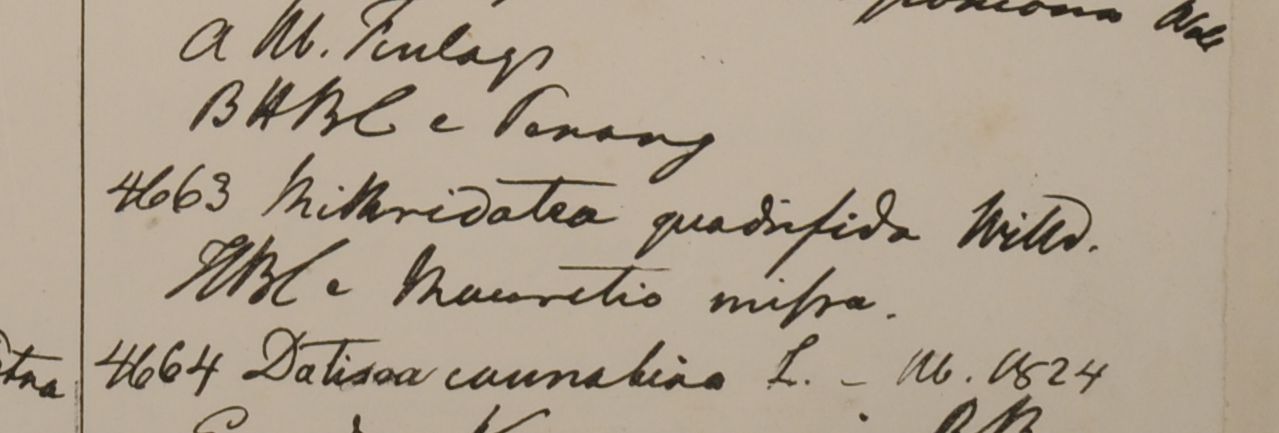 Wall
A M. Finlays
B HBC e Penang
4663 Mithridatea quadrifida Willd.
HBC e Mauritio missa.
4664 Datisca cannabina L. - M. 1824